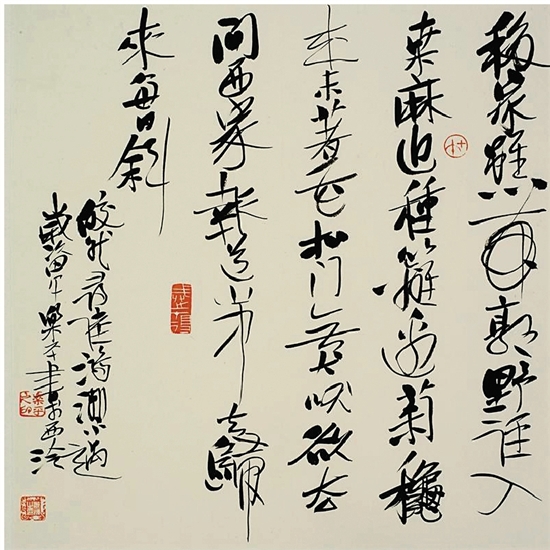 移家雖帶郭野徑入
桑麻近種籬邊菊穐
來未著花扣門無犬吠欲去
問西家報道山中去歸
來每日斜
皎然尋陸鴻漸不遇
歲樂平書西泠